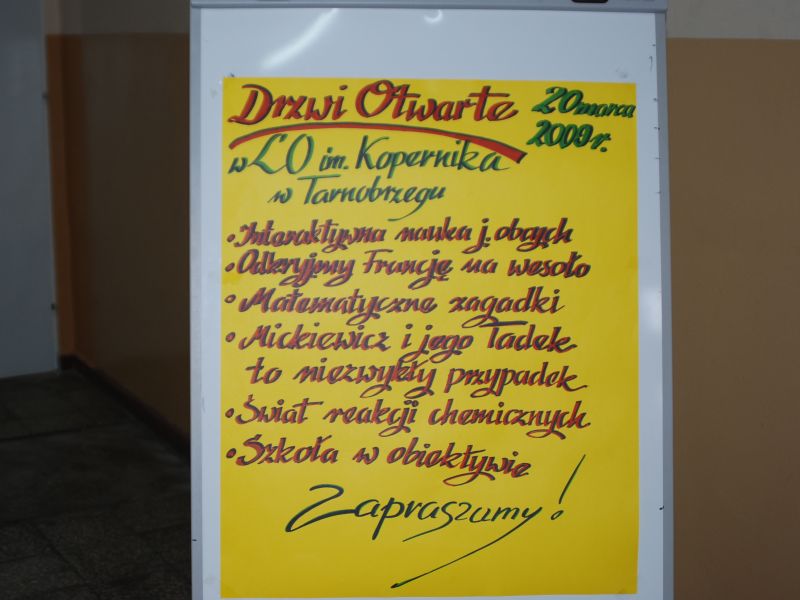 Drzwi Otwarte 20 marca
2009 r.
w LO im. Kopernika
w Tarnobrzegu
• Interaktywna nauka j. obcych
• Odkryjmy Francję na wesoło
• Matematyczne zagadki
• Mickiewicz i jego Tadek
to niezwykły przypadek
• Świat reakcji chemicznych
• Szkoła w obiektywie
Zapraszamy!